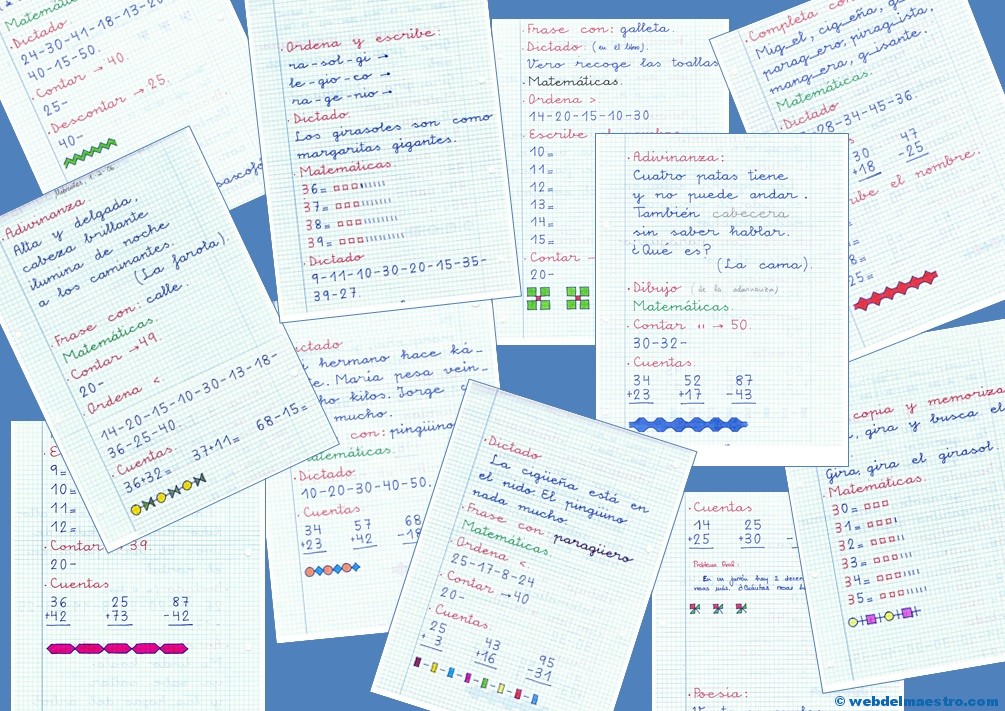 Matemáti
.Dictado.
24-30-41-18-13-2
40-15-50.
.Contar → 40.
25-
.Descontar → 25.
40-
.Ordena y escribe:
ra-sol-gi →
le-gio-co →
ra-ge-nio →
.Dictado:
Los girasoles son como
margaritas gigantes.
.Matemáticas.
36=
37=
38=
39=
.Dictado
9-11-10-30-20-15-35-
39-27.
.Frase con: galleta.
.Dictado: (en el libro).
Vero recoge las toallas
.Matemáticas.
.Ordena >.
14-20-15-10-30
.Escribe
10=
11=
12=
13=
14=
15=
.Contar →
20-
.Completa co
Mig_el, cigüeña, g
parag_ero, piragüista,
mang_era, g_isante.
Matemáticas.
.Dictado
28-34-45-36.
30 47
+18 -25
ibe el nombre.
25=
Miércoles,
.Adivinanza
Alta y delgada,
cabeza brillante
ilumina de noche
a los caminantes.
(La farola).
.Frase con: calle.
Matemáticas
.Contar → 49.
20-
.Ordena <.
14-20-15-10-30-13-18-
36-25-40.
.Cuentas
36+32= 37+11= 68-15=
.Adivinanza:
Cuatro patas tiene
y no puede andar.
También cabecera
sin saber hablar.
¿Qué es?
(La cama).
.Dibujo (de la adivinanza)
Matemáticas.
.Contar " → 50.
30-32-
.Cuentas.
34 52 87
+23 +17 -43
ictado
hermano hace ká_
e. María pesa vein_
ho kilos. Jorge
mucho.
con: pingüino
Matemáticas.
.Dictado
10-20-30-40-50.
.Cuentas
34 57 68
+23 +42 -1
.Dictado
La cigüeña está en
el nido. El pingüino
nada mucho.
.Frase con: paragüero
Matemáticas.
.Ordena <.
25-17-8-24
.Contar → 40
20-
.Cuentas
25 43 95
+3 +16 -31
copia y memoriza
, gira y busca el
Gira, gira el girasol.
.Matemáticas.
30=
31=
32=
33=
34=
35=
9=
10=
11=
12=
.Contar → 39.
20-
.Cuentas
36 25 87
+42 +73 -42
.Cuentas
14 25
+25 +30 -
Problema Oral:
En un jarrón hay 2 decen
rosas más. ¿Cuántas rosas
.Poesía:
© webdelmaestro.com